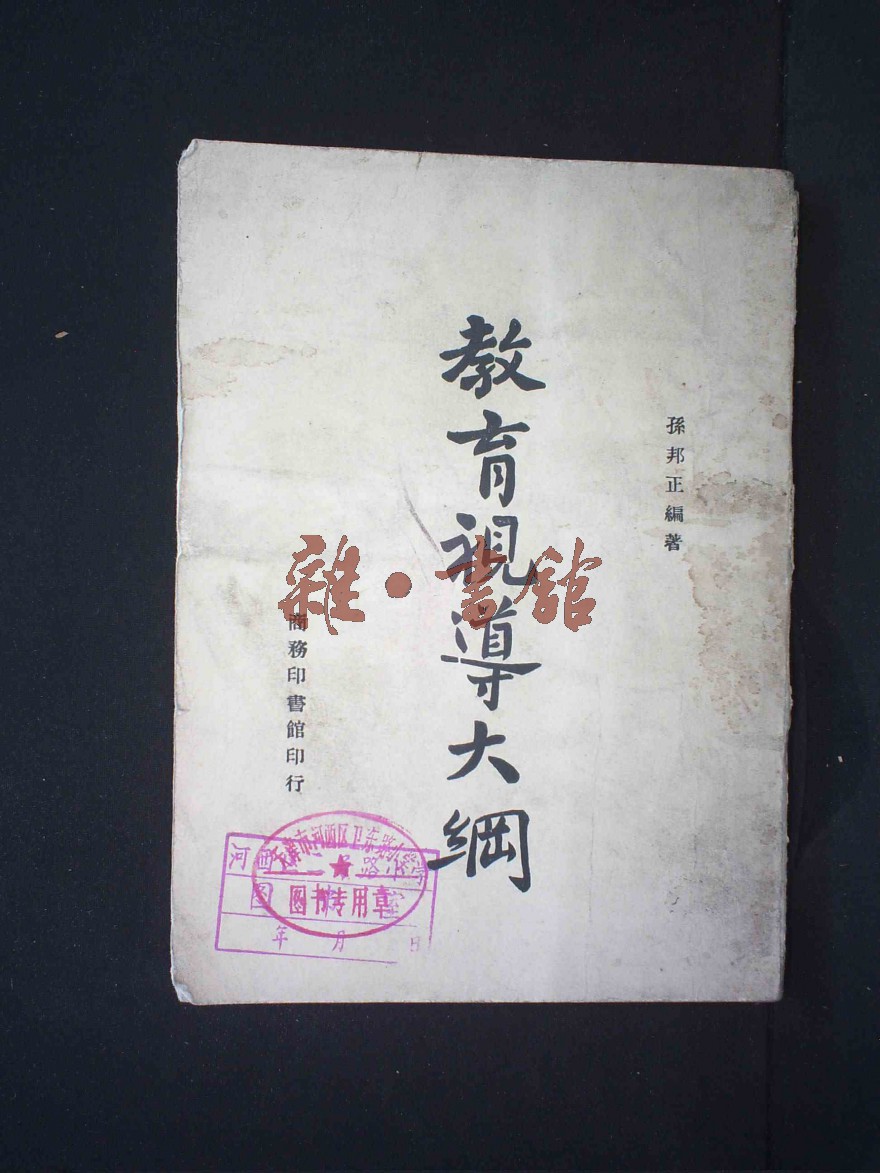 孫邦正編著
教育視導大綱
商務印書館印行
雜·書館
天津市河西区卫东路小学
图书专用章
河西
路小学
图
室
年 月 日